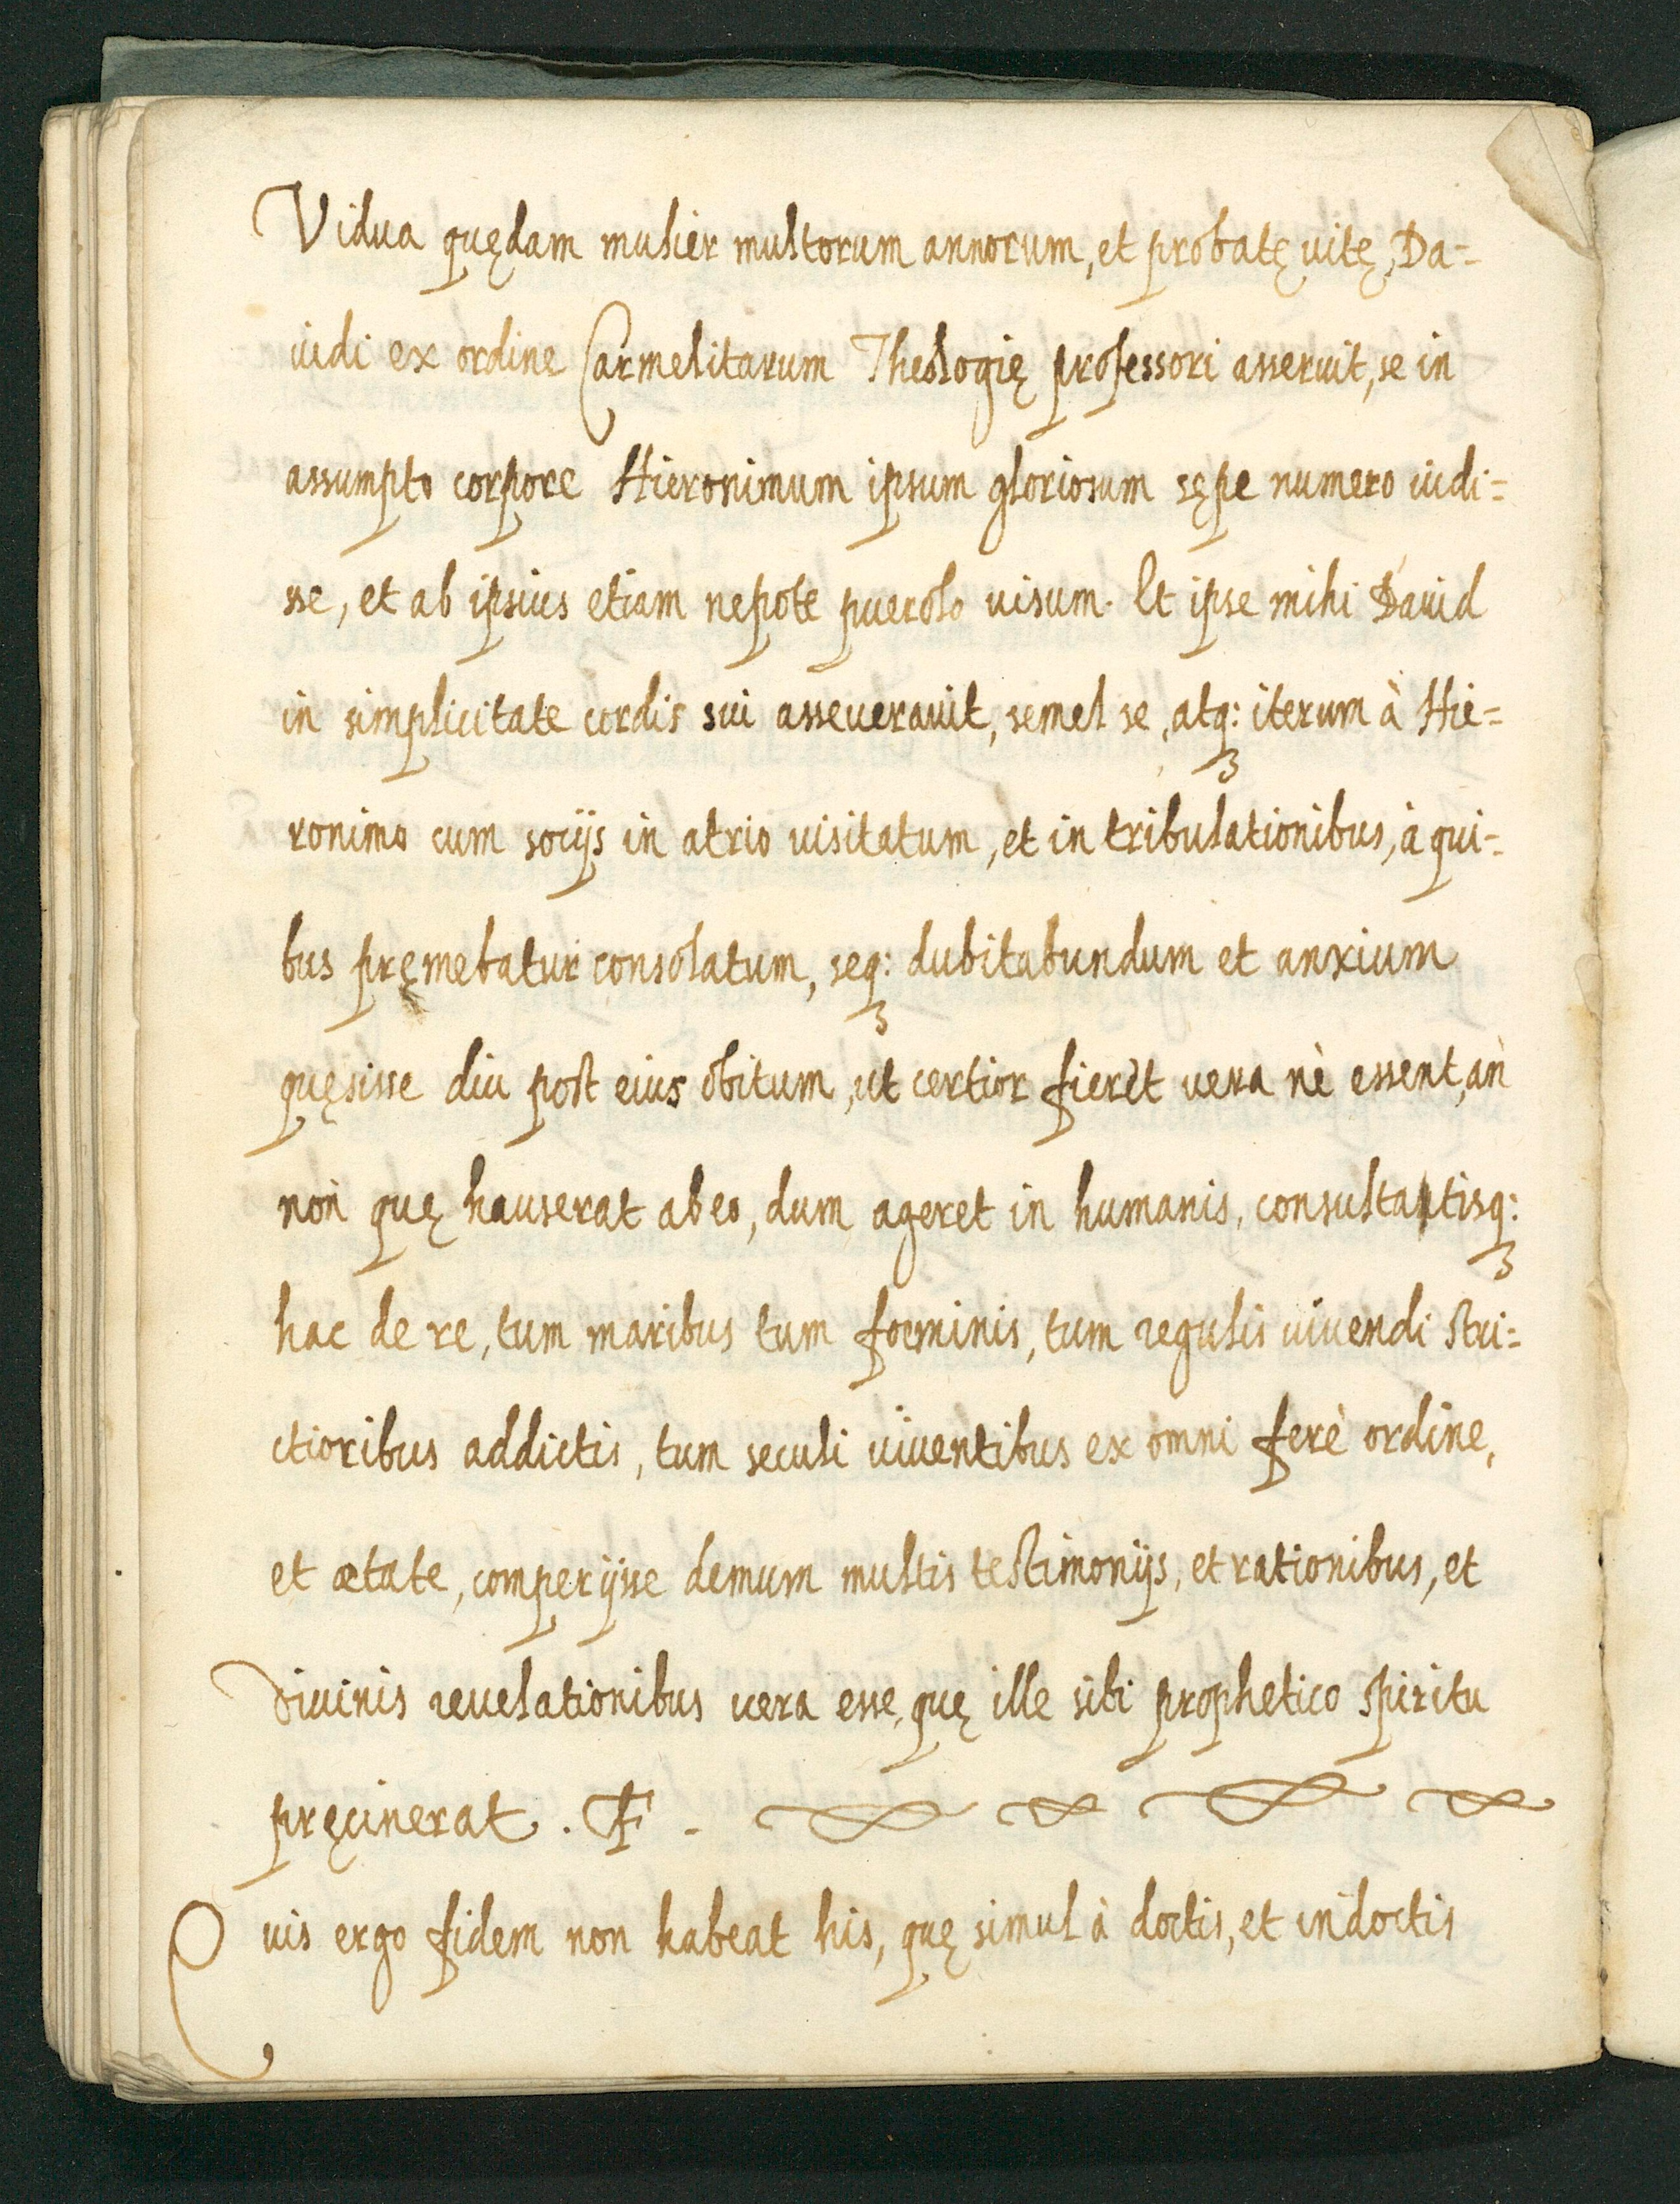 Vidua quędam mulier multorum annorum, et probatę uitę, Da=
uidi ex ordine Carmelitarum Theologię professori asseruit, se in
assumpto corpore Hieronimum ipsum gloriosum sępe numero uidi=
sse, et ab ipsius etiam nepote puerolo uisum. Et ipse mihi Dauid
in simplicitate cordis sui asseuerauit, semel se, atq: iterum à Hie=
ronimo cum socijs in atrio uisitatum, et in tribulationibus, à qui=
bus pręmebatur consolatum, seq: dubitabundum et anxium
quęsisse diu post eius obitum, ut certior fierèt uera nè essent, an
non quę hauserat ab eo, dum ageret in humanis, consultatisq:
hac de re, tum maribus tum foeminis, tum regulis uiuendi stri=
ctioribus addictis, tum seculi uiuentibus ex omni ferè ordine,
et ætate, comperijsse demum multis testimonijs, et rationibus, et
diuinis reuelationibus uera esse, quę ille sibi prophetico spiritu
pręcinerat. F.
Quis ergo fidem non habeat his, quę simul à doctis, et indoctis